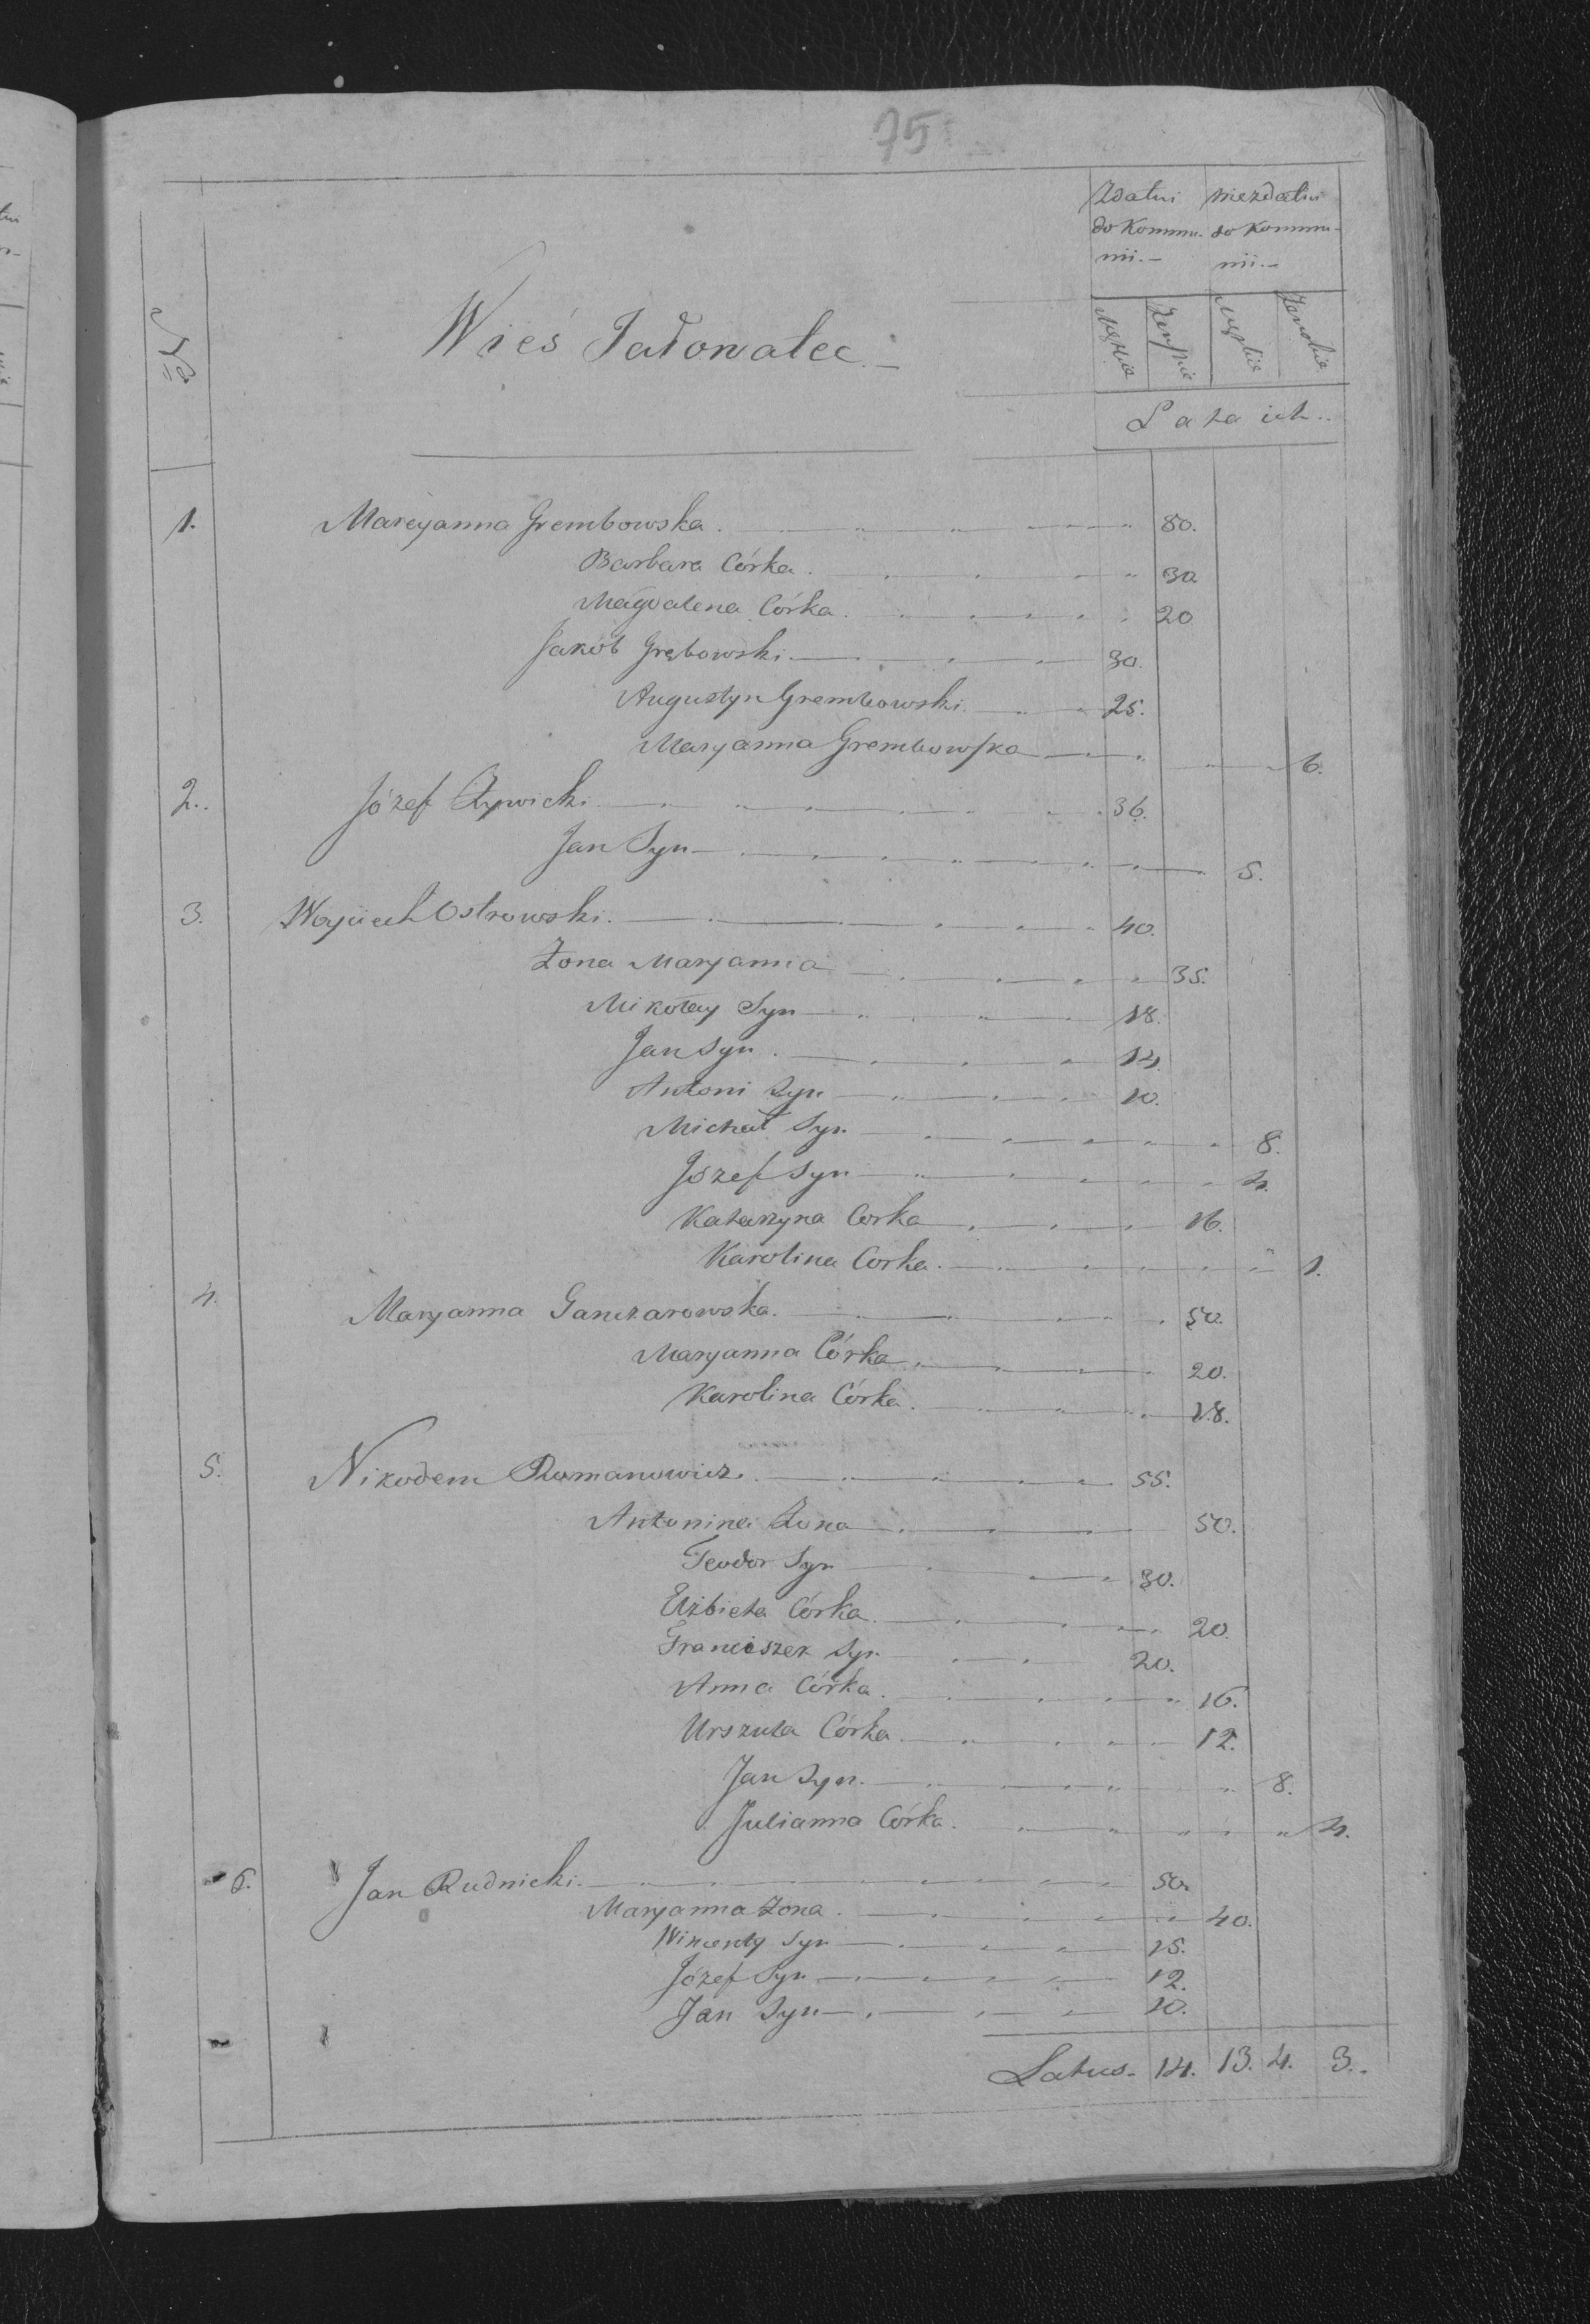 75
Zdatni niezdatni
do Kommu- do Kommu-
nii.- nii.-
Męzkie Żeńskie męzkie żenskie
Nro
Wieś Jadowalec.-
Lata ich..
1. Maryanna Grembowska. 80.
Barbara Córka. 30
Magdalena Córka. 20
Jakób Grębowski. 30.
Augustyn Grembowski. 25.
Maryanna Grembowska 6.
2. Józef Żywicki 36.
Jan Syn 5.
3. Woyciech Ostrowski. 40.
Żona Maryanna 35.
Mikołay Syn 18.
Jan Syn. 14.
Antoni Syn 10.
Michał Syn 8.
Józef Syn 4.
Katarzyna Corka 16.
Karolina Corka. 1.
4. Maryanna Ganczarowska. 50.
Maryanna Córka 20.
Karolina Córka. 18.
5. Nikodem Romanowicz. 55.
Antonina Żona 50.
Teodor Syn 30.
Elżbieta Córka. 20.
Franciszek Syn 20.
Anna Córka. 16.
Urszula Córka. 12.
Jan Syn. 8.
Julianna Córka. 4.
6. Jan Rudnicki. 50.
Maryanna Żona. 40.
Wincenty Syn 15.
Józef Syn 12.
Jan Syn 10.
Latus. 14. 13. 4. 3..